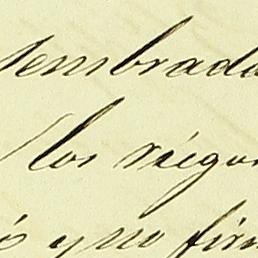 sembrada
los riegos
y no firm